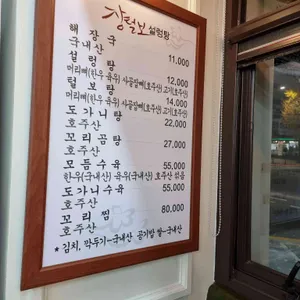 장철보 설렁탕
해장국 11,000
국내산
설렁탕 12,000
머리뼈(한우 육우) 사골잡뼈(호주산) 고기(호주산)
털보탕 14,000
머리뼈(한우 육우) 사골잡뼈(호주산) 고기(호주산)
도가니탕 22,000
호주산
꼬리곰탕 27,000
호주산
모듬수육 55,000
한우(국내산) 육우(국내산) 호주산 섞음
도가니수육 55,000
호주산
꼬리찜 80,000
호주산
* 김치, 깍두기-국내산 공기밥 쌀-국내산